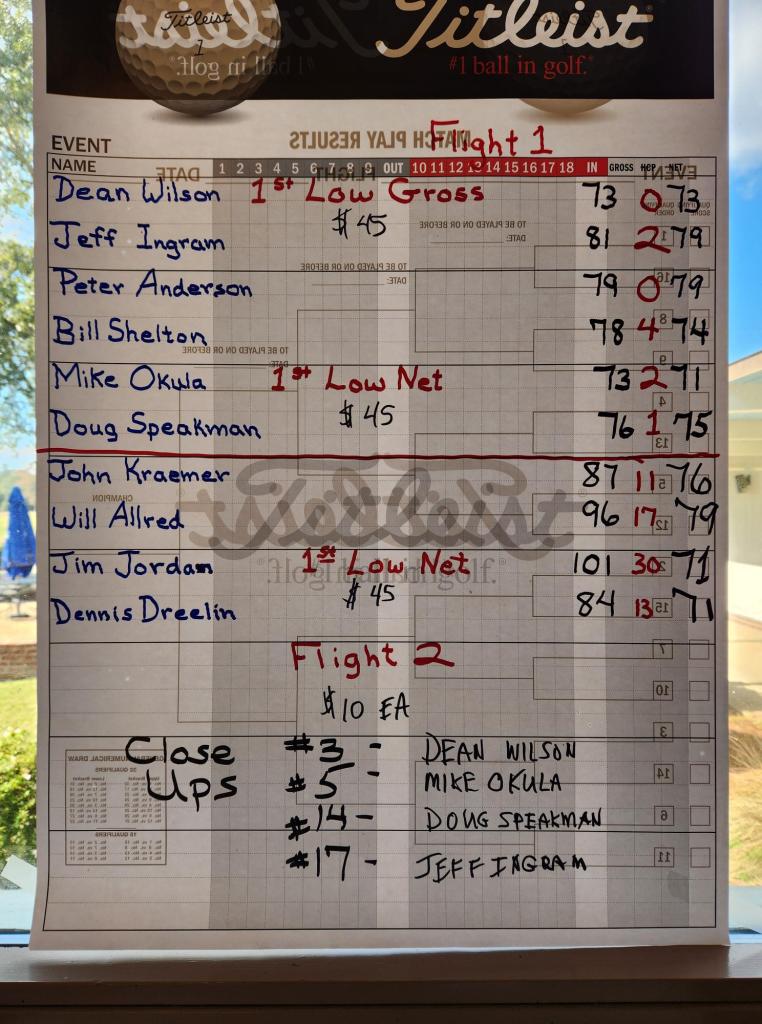 Titleist
1
Titleist
#1 ball in golf.®
Flight 1
MATCH PLAY RESULTS
EVENT
NAME 1 2 3 4 5 6 7 8 9 OUT 10 11 12 13 14 15 16 17 18 IN GROSS HCP NET
Dean Wilson 1st Low Gross 73 0 73
$45
Jeff Ingram 81 2 79
Peter Anderson 79 0 79
Bill Shelton 78 4 74
Mike Okula 1st Low Net 73 2 71
$45
Doug Speakman 76 1 75
John Kraemer 87 11 76
Titleist
Will Allred 96 17 79
Jim Jordan 1st Low Net 101 30 71
$45
Dennis Dreelin 84 13 71
Flight 2
$10 EA
Close #3 - DEAN WILSON
Ups #5 - MIKE OKULA
#14 - DOUG SPEAKMAN
#17 - JEFF INGRAM